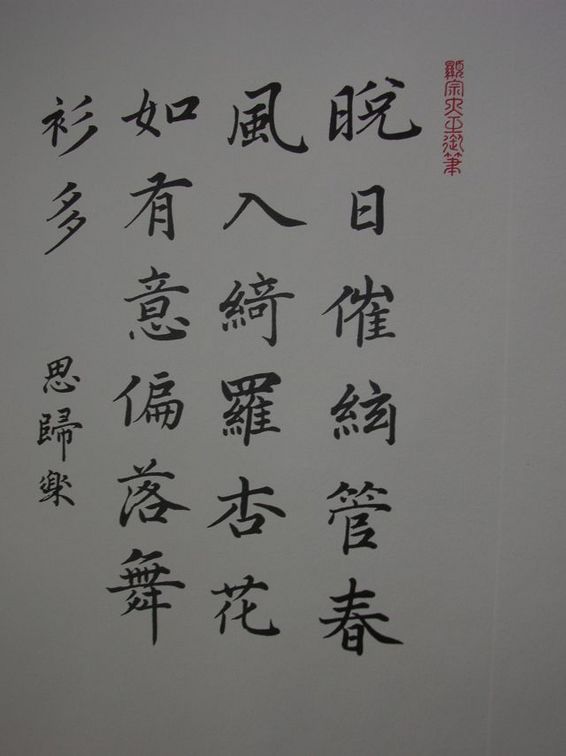 顯宗大王御筆
晩日催絃管春
風入綺羅杏花
如有意偏落舞
衫多
思歸楽